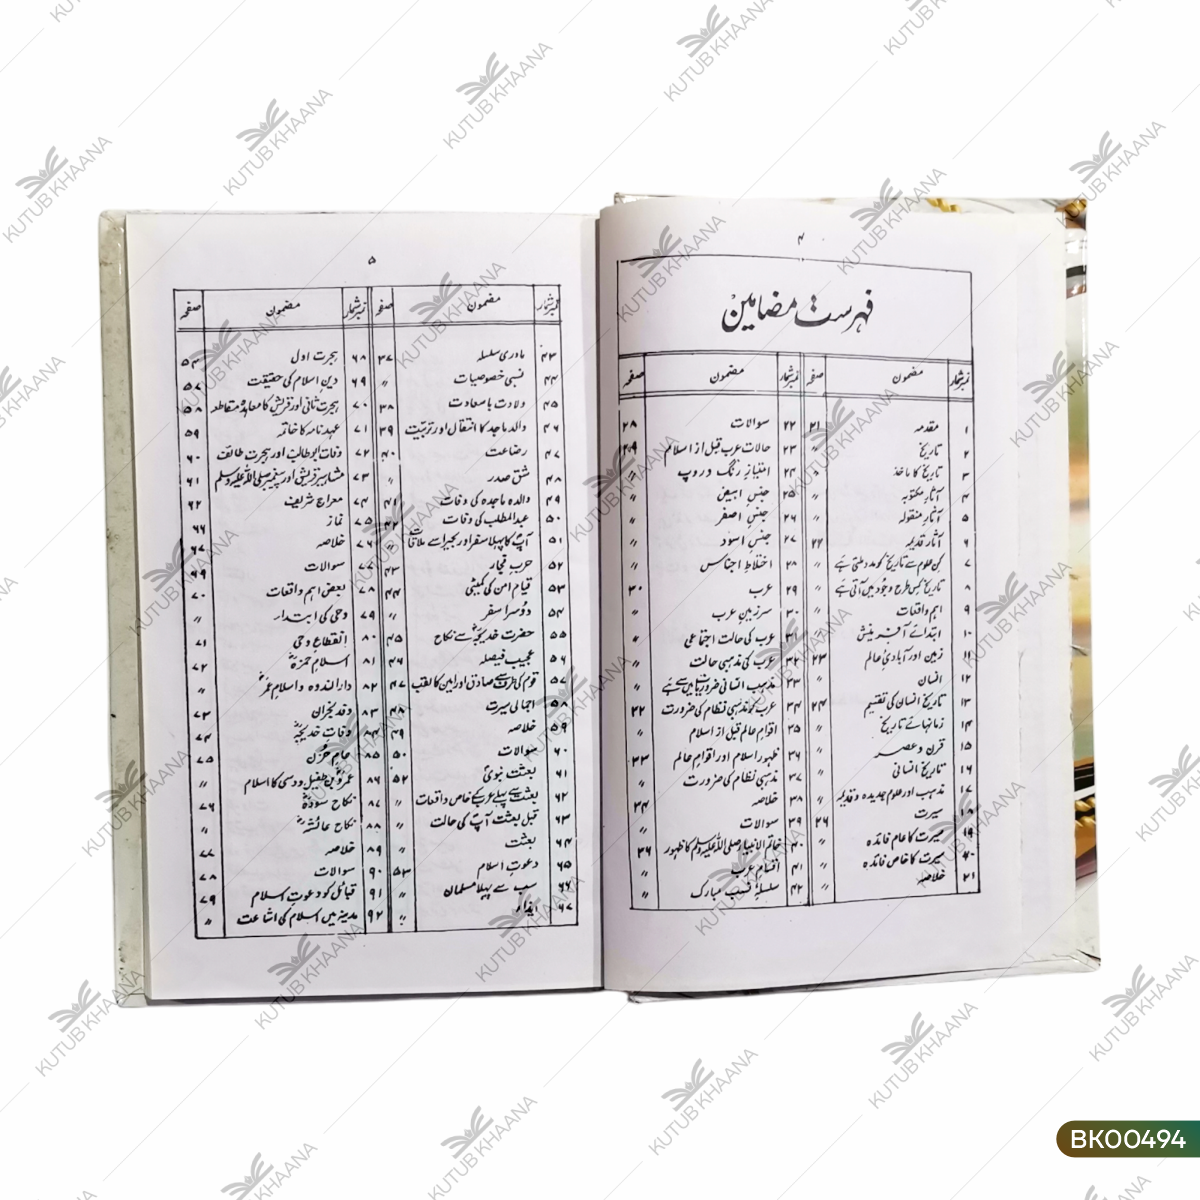 ۴
فہرست مضامین
نمبر شمار مضمون صفحہ نمبر شمار مضمون صفحہ
۱ مقدمہ ۲۱ ۲۲ سوالات ۲۸
۲ تاریخ ۲۳ حالات عرب قبل از اسلام ۲۹
۳ تاریخ کا ماخذ ۲۴ امتیاز رنگ و روپ
۴ آثار مکتوبہ ۲۵ جنس ابیض
۵ آثار منقولہ ۲۶ جنس اصفر
۶ آثار قدیمہ ۲۲ ۲۷ جنس اسود
۷ کن علوم سے تاریخ کو مدد ملتی ہے ۲۸ اختلاط اجناس
۸ تاریخ کس طرح وجود میں آتی ہے ۲۹ عرب ۳۰
۹ اہم واقعات ۳۰ سرزمین عرب
۱۰ ابتدائے آفرینش ۳۱ عرب کی حالت اجتماعی
۱۱ زمین اور آبادیٔ عالم ۲۳ ۳۲ عرب کی مذہبی حالت
۱۲ انسان ۳۳ مذہب انسانی ضروریات میں سے ہے
۱۳ تاریخ انسان کی تقسیم ۲۴ ۳۴ عرب کو مذہبی نظام کی ضرورت ۳۲
۱۴ زمانہائے تاریخ ۳۵ اقوام عالم قبل از اسلام
۱۵ قرن و عصر ۳۶ ظہور اسلام اور اقوام عالم ۳۳
۱۶ تاریخ انسانی ۳۷ مذہبی نظام کی ضرورت
۱۷ مذہب اور علوم جدیدہ و قدیمہ ۳۸ خلاصہ ۳۴
۱۸ سیرت ۲۶ ۳۹ سوالات
۱۹ سیرت کا عام فائدہ ۴۰ خاتم الانبیاء صلی اللہ علیہ وسلم کا ظہور ۳۶
۲۰ سیرت کا خاص فائدہ ۴۱ اقسام عرب
۲۱ خلاصہ ۴۲ سلسلۂ نسب مبارک
۵
نمبر شمار مضمون صفحہ نمبر شمار مضمون صفحہ
۴۳ مادری سلسلہ ۳۷ ۶۸ ہجرت اول ۵۴
۴۴ نسبی خصوصیات ۶۹ دین اسلام کی حقیقت ۵۷
۴۵ ولادت با سعادت ۳۸ ۷۰ ہجرت ثانی اور قریش کا معاہدہ مقاطعہ ۵۸
۴۶ والد ماجد کا انتقال اور تربیت ۳۹ ۷۱ عہد نامہ کا خاتمہ ۵۹
۴۷ رضاعت ۴۰ ۷۲ وفات ابو طالب اور ہجرت طائف ۶۰
۴۸ شق صدر ۷۳ مشاہیر قریش اور پیغمبر صلی اللہ علیہ وسلم ۶۱
۴۹ والدہ ماجدہ کی وفات ۴۱ ۷۴ معراج شریف ۶۲
۵۰ عبدالمطلب کی وفات ۴۲ ۷۵ نماز ۶۶
۵۱ آپ کا پہلا سفر اور بحیرا سے ملاقات ۷۶ خلاصہ ۶۷
۵۲ حرب فجار ۴۳ ۷۷ سوالات ۶۹
۵۳ قیام امن کی کمیٹی ۴۴ ۷۸ بعض اہم واقعات ۷۰
۵۴ دوسرا سفر ۷۹ وحی کی ابتداء
۵۵ حضرت خدیجہ سے نکاح ۴۵ ۸۰ انقطاع وحی ۷۱
۵۶ عجیب فیصلہ ۴۶ ۸۱ اسلام حمزہ ۷۲
۵۷ قوم کی طرف سے صادق اور امین کا لقب ۴۷ ۸۲ دار الندوہ و اسلام عمر
۵۸ اجمالی سیرت ۴۸ ۸۳ وفد نجران ۷۳
۵۹ خلاصہ ۴۹ ۸۴ وفات خدیجہ ۷۴
۶۰ سوالات ۵۰ ۸۵ عام حزن ۷۵
۶۱ بعثت نبوی ۵۲ ۸۶ عمرو بن طفیل دوسی کا اسلام
۶۲ بعثت سے پہلے عرب کے خاص واقعات ۸۷ نکاح سودہ ۷۶
۶۳ قبل بعثت آپ کی حالت ۸۸ نکاح عائشہ
۶۴ بعثت ۸۹ خلاصہ ۷۷
۶۵ دعوت اسلام ۵۳ ۹۰ سوالات ۷۸
۶۶ سب سے پہلا مسلمان ۹۱ قبائل کو دعوت اسلام ۷۹
۶۷ ایذاء ۹۲ مدینہ میں اسلام کی اشاعت
KUTUB KHAANA
BK00494